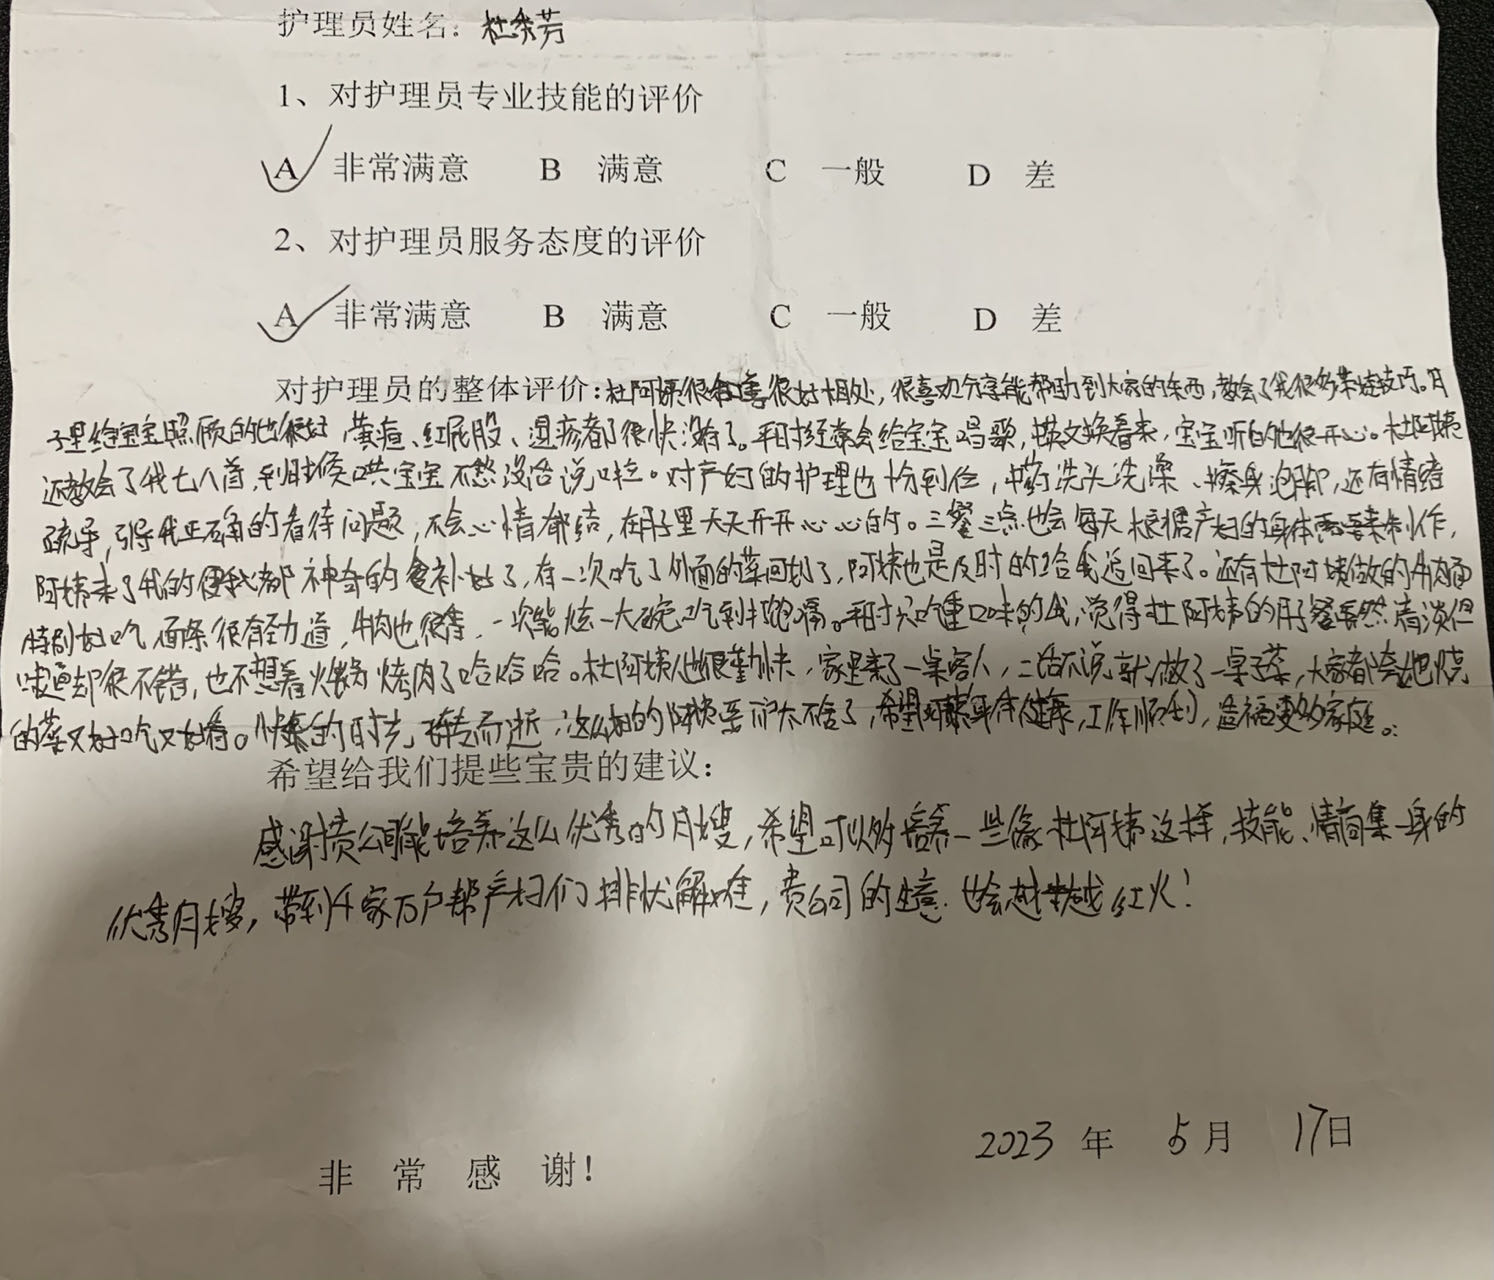 护理员姓名：杜余芳
1、对护理员专业技能的评价
A 非常满意 B 满意 C 一般 D 差
2、对护理员服务态度的评价
A 非常满意 B 满意 C 一般 D 差
对护理员的整体评价：杜阿姨很和善很好相处，很喜欢分享能帮助到大家的东西，教会了我很多菜谱技巧。月
子里给宝宝照顾的也很好，黄疸、红屁股、湿疹都了很快没有了。平时经常会给宝宝唱歌，英文换着来，宝宝听的也很开心。杜阿姨
还教会了我七八首，到时候哄宝宝不愁没话说啦。对产妇的护理也十分到位，中药洗头洗澡、擦身泡脚，还有情绪
疏导，引导我正确的看待问题，不会心情郁结，在月子里天天开开心心的。三餐三点也会每天根据产妇的身体需要来制作，
阿姨来了我的便秘都神奇的食补好了，有一次吃了外面的菜回奶了，阿姨也是及时的给我追回来了。还有杜阿姨做的牛肉面
特别好吃，面条很有劲道，牛肉也很香，一次能炫一大碗吃到打饱嗝。平时只吃重口味的我，觉得杜阿姨的月子餐虽然清淡但
味道却很不错，也不想着火锅烤肉了哈哈哈。杜阿姨人也很勤快，家里来了一桌客人，二话不说就做了一桌子菜，大家都夸她烧
的菜又好吃又好看。快乐的时光转走而逝，这么好的阿姨要走太不舍了，希望阿姨身体健康，工作顺利，造福更多家庭。
希望给我们提些宝贵的建议：
感谢贵公司能培养这么优秀的月嫂，希望可以多培养一些像杜阿姨这样，技能、情商集一身的
优秀月嫂，带到千家万户帮产妇们排忧解难，贵公司的生意也会越来越红火！
2023 年 5 月 17日
非 常 感 谢！